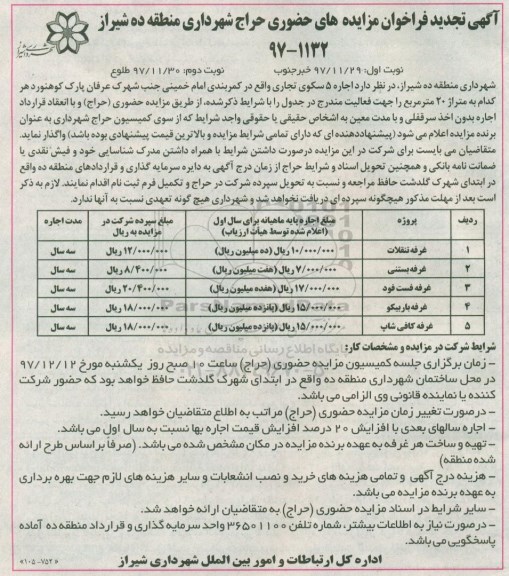 آگهی تجدید فراخوان مزایده های حضوری حراج شهرداری منطقه ده شیراز
۹۷-۱۱۳۲
نوبت اول: ۹۷/۱۱/۲۹ خبرجنوب نوبت دوم: ۹۷/۱۱/۳۰ طلوع
شهرداری منطقه ده شیراز، در نظر دارد اجاره ۵ سکوی تجاری واقع در کمربندی امام خمینی جنب شهرک عرفان پارک کوهنورد هر
کدام به متراژ ۲۰ مترمربع را جهت فعالیت مندرج در جدول را با شرایط ذکرشده، از طریق مزایده حضوری (حراج) و با انعقاد قرارداد
اجاره بدون اخذ سرقفلی و با مدت معین به اشخاص حقیقی یا حقوقی واجد شرایط که از سوی کمیسیون حراج شهرداری به عنوان
برنده مزایده اعلام می شود (پیشنهاددهنده ای که دارای تمامی شرایط مزایده و بالاترین قیمت پیشنهادی بوده باشد) واگذار نماید.
متقاضیان می بایست برای شرکت در این مزایده درصورت داشتن شرایط با همراه داشتن مدرک شناسایی خود و فیش نقدی یا
ضمانت نامه بانکی و همچنین تحویل اسناد و شرایط حراج از زمان درج آگهی به دایره سرمایه گذاری و قراردادهای منطقه ده واقع
در ابتدای شهرک گلدشت حافظ مراجعه و نسبت به تحویل سپرده شرکت در حراج و تکمیل فرم ثبت نام اقدام نمایند. لازم به ذکر
است بعد از مهلت مذکور هیچگونه سپرده ای دریافت نخواهد شد و شهرداری هیچ گونه تعهدی نسبت به آنها ندارد.
ردیف پروژه مبلغ اجاره پایه ماهیانه برای سال اول (اعلام شده توسط هیات ارزیاب) مبلغ سپرده شرکت در مزایده به ریال مدت اجاره
۱ غرفه تنقلات ۱۰/۰۰۰/۰۰۰ ریال (ده میلیون ریال) ۱۲/۰۰۰/۰۰۰ ریال سه سال
۲ غرفه بستنی ۷/۰۰۰/۰۰۰ ریال (هفت میلیون ریال) ۸/۴۰۰/۰۰۰ ریال سه سال
۳ غرفه فست فود ۱۷/۰۰۰/۰۰۰ ریال (هفده میلیون ریال) ۲۰/۴۰۰/۰۰۰ ریال سه سال
۴ غرفه باربیکو ۱۵/۰۰۰/۰۰۰ ریال (پانزده میلیون ریال) ۱۸/۰۰۰/۰۰۰ ریال سه سال
۵ غرفه کافی شاپ ۱۵/۰۰۰/۰۰۰ ریال (پانزده میلیون ریال) ۱۸/۰۰۰/۰۰۰ ریال سه سال
شرایط شرکت در مزایده و مشخصات کار:
- زمان برگزاری جلسه کمیسیون مزایده حضوری (حراج) ساعت ۱۰ صبح روز یکشنبه مورخ ۹۷/۱۲/۱۲
در محل ساختمان شهرداری منطقه ده واقع در ابتدای شهرک گلدشت حافظ خواهد بود که حضور شرکت
کننده یا نماینده قانونی وی الزامی می باشد.
- درصورت تغییر زمان مزایده حضوری (حراج) مراتب به اطلاع متقاضیان خواهد رسید.
- اجاره سالهای بعدی با افزایش ۲۰ درصد افزایش قیمت اجاره بها نسبت به سال اول می باشد.
- تهیه و ساخت هر غرفه به عهده برنده مزایده در مکان مشخص شده می باشد. (صرفاً براساس طرح ارائه
شده منطقه)
- هزینه درج آگهی و تمامی هزینه های خرید و نصب انشعابات و سایر هزینه های لازم جهت بهره برداری
به عهده برنده مزایده می باشد.
- سایر شرایط در اسناد مزایده حضوری (حراج) به متقاضیان ارائه خواهد شد.
- درصورت نیاز به اطلاعات بیشتر، شماره تلفن ۳۶۵۰۱۱۰۰ واحد سرمایه گذاری و قرارداد منطقه ده آماده
پاسخگویی می باشد.
اداره کل ارتباطات و امور بین الملل شهرداری شیراز
«۱۰۵-۷۵۲»